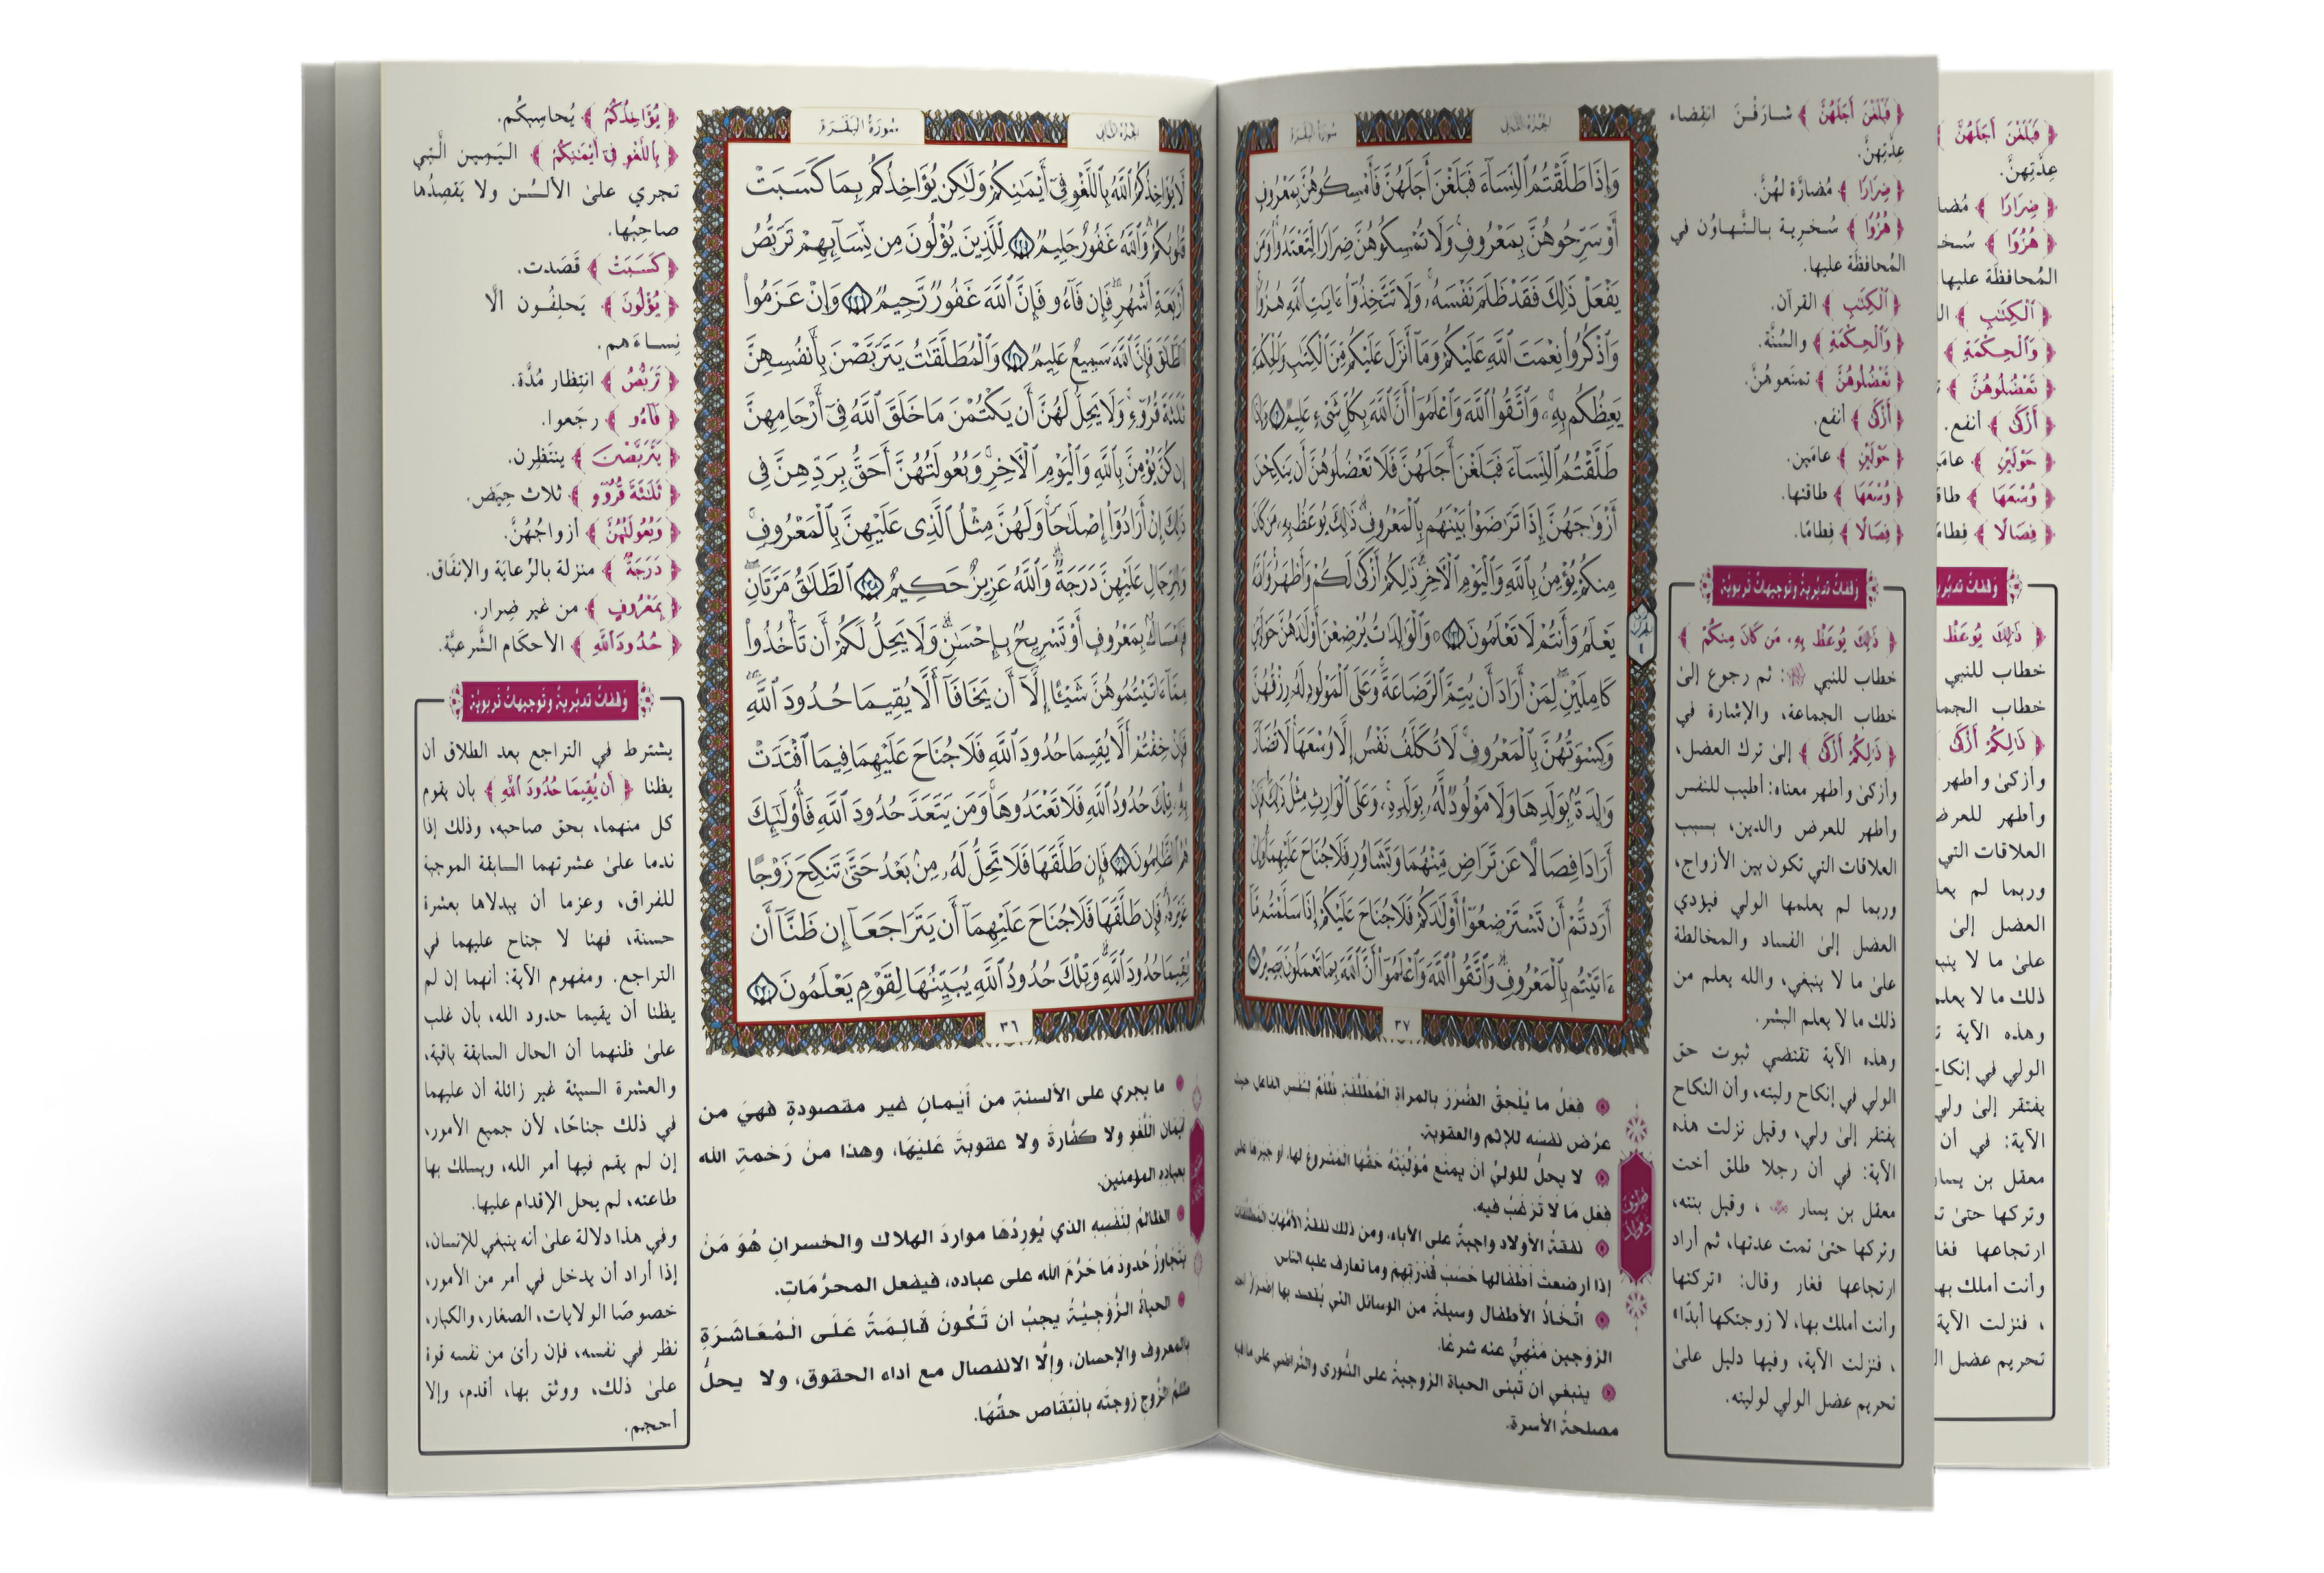 سُورَةُ البَقَرَةِ
الجُزْءُ الثَّانِي
لَّا يُؤَاخِذُكُمُ ٱللَّهُ بِٱللَّغْوِ فِىٓ أَيْمَٰنِكُمْ وَلَٰكِن يُؤَاخِذُكُم بِمَا كَسَبَتْ
قُلُوبُكُمْ وَٱللَّهُ غَفُورٌ حَلِيمٌ ٢٢٥ لِّلَّذِينَ يُؤْلُونَ مِن نِّسَآئِهِمْ تَرَبُّصُ
أَرْبَعَةِ أَشْهُرٍ فَإِن فَآءُو فَإِنَّ ٱللَّهَ غَفُورٌ رَّحِيمٌ ٢٢٦ وَإِنْ عَزَمُوا۟
ٱلطَّلَٰقَ فَإِنَّ ٱللَّهَ سَمِيعٌ عَلِيمٌ ٢٢٧ وَٱلْمُطَلَّقَٰتُ يَتَرَبَّصْنَ بِأَنفُسِهِنَّ
ثَلَٰثَةَ قُرُوٓءٍ وَلَا يَحِلُّ لَهُنَّ أَن يَكْتُمْنَ مَا خَلَقَ ٱللَّهُ فِىٓ أَرْحَامِهِنَّ
إِن كُنَّ يُؤْمِنَّ بِٱللَّهِ وَٱلْيَوْمِ ٱلْأَخِرِ وَبُعُولَتُهُنَّ أَحَقُّ بِرَدِّهِنَّ فِى
ذَٰلِكَ إِنْ أَرَادُوٓا۟ إِصْلَٰحًا وَلَهُنَّ مِثْلُ ٱلَّذِى عَلَيْهِنَّ بِٱلْمَعْرُوفِ
وَلِلرِّجَالِ عَلَيْهِنَّ دَرَجَةٌ وَٱللَّهُ عَزِيزٌ حَكِيمٌ ٢٢٨ ٱلطَّلَٰقُ مَرَّتَانِ
فَإِمْسَاكٌۢ بِمَعْرُوفٍ أَوْ تَسْرِيحٌۢ بِإِحْسَٰنٍ وَلَا يَحِلُّ لَكُمْ أَن تَأْخُذُوا۟
مِمَّآ ءَاتَيْتُمُوهُنَّ شَيْـًٔا إِلَّآ أَن يَخَافَآ أَلَّا يُقِيمَا حُدُودَ ٱللَّهِ
فَإِنْ خِفْتُمْ أَلَّا يُقِيمَا حُدُودَ ٱللَّهِ فَلَا جُنَاحَ عَلَيْهِمَا فِيمَا ٱفْتَدَتْ
بِهِۦ تِلْكَ حُدُودُ ٱللَّهِ فَلَا تَعْتَدُوهَا وَمَن يَتَعَدَّ حُدُودَ ٱللَّهِ فَأُو۟لَٰٓئِكَ
هُمُ ٱلظَّٰلِمُونَ ٢٢٩ فَإِن طَلَّقَهَا فَلَا تَحِلُّ لَهُۥ مِنۢ بَعْدُ حَتَّىٰ تَنكِحَ زَوْجًا
غَيْرَهُۥ فَإِن طَلَّقَهَا فَلَا جُنَاحَ عَلَيْهِمَآ أَن يَتَرَاجَعَآ إِن ظَنَّآ أَن
يُقِيمَا حُدُودَ ٱللَّهِ وَتِلْكَ حُدُودُ ٱللَّهِ يُبَيِّنُهَا لِقَوْمٍ يَعْلَمُونَ ٢٣٠
٣٦
﴿يُؤَاخِذُكُمُ﴾ يُحاسِبكُم.
﴿بِٱللَّغْوِ فِىٓ أَيْمَٰنِكُمْ﴾ اليَمِين الَّتِي
تجري علىٰ الألسُن ولا يَقصِدُها
صاحِبُها.
﴿كَسَبَتْ﴾ قَصَدت.
﴿يُؤْلُونَ﴾ يَحلِفُون ألَّا
نِساءَهم.
﴿تَرَبُّصُ﴾ انتِظار مُدَّة.
﴿فَآءُو﴾ رجَعوا.
﴿يَتَرَبَّصْنَ﴾ ينتَظِرن.
﴿ثَلَٰثَةَ قُرُوٓءٍ﴾ ثلاث حِيَض.
﴿وَبُعُولَتُهُنَّ﴾ أزواجُهُنَّ.
﴿دَرَجَةٌ﴾ منزلة بالرِّعايَة والإنفَاق.
﴿بِمَعْرُوفٍ﴾ من غير ضِرار.
﴿حُدُودَ ٱللَّهِ﴾ الأحكَام الشَّرعيَّة.
وَقفاتٌ تدبُّريةٌ وتَوجيهاتٌ تَربويَّة
يشترط في التراجع بعد الطلاق أن
يظنا ﴿أَن يُقِيمَا حُدُودَ ٱللَّهِ﴾ بأن يقوم
كل منهما، بحق صاحبه، وذلك إذا
ندما علىٰ عشرتهما السابقة الموجبة
للفراق، وعزما أن يبدلاها بعشرة
حسنة، فهنا لا جناح عليهما في
التراجع. ومفهوم الآية: أنهما إن لم
يظنا أن يقيما حدود الله، بأن غلب
علىٰ ظنهما أن الحال السابقة باقية،
والعشرة السيئة غير زائلة أن عليهما
في ذلك جناحًا، لأن جميع الأمور،
إن لم يقم فيها أمر الله، ويسلك بها
طاعته، لم يحل الإقدام عليها.
وفي هذا دلالة علىٰ أنه ينبغي للإنسان،
إذا أراد أن يدخل في أمر من الأمور،
خصوصًا الولايات، الصغار، والكبار،
نظر في نفسه، فإن رأىٰ من نفسه قوة
علىٰ ذلك، ووثق بها، أقدم، وإلا
أحجم.
ما يجري على الألسنةِ من أيمانٍ غير مقصودةٍ فهيَ من
أيمان اللَّغوِ ولا كفَّارةَ ولا عقوبةَ عَليهَا، وهذا منْ رَحمةِ الله
بعبادِه المؤمنين.
الظالمُ لنَفْسِهِ الذي يُورِدُهَا مواردَ الهلاك والخسرانِ هُوَ مَنْ
يتجاوزُ حُدودَ مَا حَرَّمَ الله على عباده، فيفعل المحرَّمَاتِ.
الحياةُ الزَّوجيَّةُ يجبُ أن تَكُونَ قَائِمَةً عَلَى المُعَاشَرَةِ
بالمعروف والإحسان، وإلَّا الانفصال مع أداء الحقوق، ولا يحلُّ
ظلمُ الزَّوجِ زوجتَه بانْتِقَاص حقِّهَا.
سُورَةُ البَقَرَةِ
الجُزْءُ الثَّانِي
وَإِذَا طَلَّقْتُمُ ٱلنِّسَآءَ فَبَلَغْنَ أَجَلَهُنَّ فَأَمْسِكُوهُنَّ بِمَعْرُوفٍ
أَوْ سَرِّحُوهُنَّ بِمَعْرُوفٍ وَلَا تُمْسِكُوهُنَّ ضِرَارًا لِّتَعْتَدُوا۟ وَمَن
يَفْعَلْ ذَٰلِكَ فَقَدْ ظَلَمَ نَفْسَهُۥ وَلَا تَتَّخِذُوٓا۟ ءَايَٰتِ ٱللَّهِ هُزُوًا
وَٱذْكُرُوا۟ نِعْمَتَ ٱللَّهِ عَلَيْكُمْ وَمَآ أَنزَلَ عَلَيْكُم مِّنَ ٱلْكِتَٰبِ وَٱلْحِكْمَةِ
يَعِظُكُم بِهِۦ وَٱتَّقُوا۟ ٱللَّهَ وَٱعْلَمُوٓا۟ أَنَّ ٱللَّهَ بِكُلِّ شَىْءٍ عَلِيمٌ ٢٣١ وَإِذَا
طَلَّقْتُمُ ٱلنِّسَآءَ فَبَلَغْنَ أَجَلَهُنَّ فَلَا تَعْضُلُوهُنَّ أَن يَنكِحْنَ
أَزْوَٰجَهُنَّ إِذَا تَرَٰضَوْا۟ بَيْنَهُم بِٱلْمَعْرُوفِ ذَٰلِكَ يُوعَظُ بِهِۦ مَن كَانَ
مِنكُمْ يُؤْمِنُ بِٱللَّهِ وَٱلْيَوْمِ ٱلْأَخِرِ ذَٰلِكُمْ أَزْكَىٰ لَكُمْ وَأَطْهَرُ وَٱللَّهُ
يَعْلَمُ وَأَنتُمْ لَا تَعْلَمُونَ ٢٣٢ وَٱلْوَٰلِدَٰتُ يُرْضِعْنَ أَوْلَٰدَهُنَّ حَوْلَيْنِ
كَامِلَيْنِ لِمَنْ أَرَادَ أَن يُتِمَّ ٱلرَّضَاعَةَ وَعَلَى ٱلْمَوْلُودِ لَهُۥ رِزْقُهُنَّ
وَكِسْوَتُهُنَّ بِٱلْمَعْرُوفِ لَا تُكَلَّفُ نَفْسٌ إِلَّا وُسْعَهَا لَا تُضَآرَّ
وَٰلِدَةٌۢ بِوَلَدِهَا وَلَا مَوْلُودٌ لَّهُۥ بِوَلَدِهِۦ وَعَلَى ٱلْوَارِثِ مِثْلُ ذَٰلِكَ فَإِنْ
أَرَادَا فِصَالًا عَن تَرَاضٍ مِّنْهُمَا وَتَشَاوُرٍ فَلَا جُنَاحَ عَلَيْهِمَا وَإِنْ
أَرَدتُّمْ أَن تَسْتَرْضِعُوٓا۟ أَوْلَٰدَكُمْ فَلَا جُنَاحَ عَلَيْكُمْ إِذَا سَلَّمْتُم مَّآ
ءَاتَيْتُم بِٱلْمَعْرُوفِ وَٱتَّقُوا۟ ٱللَّهَ وَٱعْلَمُوٓا۟ أَنَّ ٱللَّهَ بِمَا تَعْمَلُونَ بَصِيرٌ
٣٧
﴿فَبَلَغْنَ أَجَلَهُنَّ﴾ شارَفْنَ انقِضاء
عِدَّتِهنَّ.
﴿ضِرَارًا﴾ مُضارَّة لهُنَّ.
﴿هُزُوًا﴾ سُخرِية بالتَّهاوُن في
المُحافظَة عليها.
﴿ٱلْكِتَٰبِ﴾ القرآن.
﴿وَٱلْحِكْمَةِ﴾ والسُّنَّة.
﴿تَعْضُلُوهُنَّ﴾ تمنَعوهُنَّ.
﴿أَزْكَىٰ﴾ أنفع.
﴿حَوْلَيْنِ﴾ عامَين.
﴿وُسْعَهَا﴾ طاقتها.
﴿فِصَالًا﴾ فِطامًا.
وَقفاتٌ تدبُّريةٌ وتَوجيهاتٌ تَربويَّة
﴿ذَٰلِكَ يُوعَظُ بِهِۦ مَن كَانَ مِنكُمْ﴾
خطاب للنبي ﷺ: ثم رجوع إلىٰ
خطاب الجماعة، والإشارة في
﴿ذَٰلِكُمْ أَزْكَىٰ﴾ إلىٰ ترك العضل،
وأزكىٰ وأطهر معناه: أطيب للنفس
وأطهر للعرض والدين، بسبب
العلاقات التي تكون بين الأزواج،
وربما لم يعلمها الولي فيؤدي
العضل إلىٰ الفساد والمخالطة
علىٰ ما لا ينبغي، والله يعلم من
ذلك ما لا يعلم البشر.
وهذه الآية تقتضي ثبوت حق
الولي في إنكاح وليته، وأن النكاح
يفتقر إلىٰ ولي، وقيل نزلت هذه
الآية: في أن رجلا طلق أخت
معقل بن يسار، وقيل بنته،
وتركها حتىٰ تمت عدتها، ثم أراد
ارتجاعها فغار وقال: «تركتها
وأنت أملك بها، لا زوجتكها أبدًا»
، فنزلت الآية، وفيها دليل علىٰ
تحريم عضل الولي لوليته.
فعلُ ما يُلحقُ الضَّررَ بالمرأةِ المُطَلَّقَةِ ظُلمٌ لنَفس الفاعل حيث
عرَّض نفسَه للإثم والعقوبة.
لا يحلُّ للوليِّ أنْ يمنعَ مُوَلِّيَتَهُ حَقَّهَا المَشروعَ لها، أو جبرها على
فعْلِ مَا لَا تَرْغَبُ فيه.
نفقةُ الأولاد واجبةٌ على الآباء، ومن ذلك نفقةُ الأمَّهاتِ المُطلَّقات
إذا أرضعتْ أطفالَها حَسَبَ قُدرَتِهم وما تعارف عليه الناس
اتِّخاذُ الأطفال وسيلةً من الوسائل التي يُقصد بها إضرارُ أحد
الزوجين مَنْهِيٌّ عنه شرعًا.
ينبغي أن تُبنى الحياة الزوجيةُ على الشُّورى والتَّراضي على ما فيه
مصلحةُ الأسرة.
﴿فَبَلَغْنَ أَجَلَهُنَّ﴾
عِدَّتِهنَّ.
﴿ضِرَارًا﴾ مُضا
﴿هُزُوًا﴾ سُخـ
المُحافظَة عليها
﴿ٱلْكِتَٰبِ﴾ الـ
﴿وَٱلْحِكْمَةِ﴾
﴿تَعْضُلُوهُنَّ﴾ تـ
﴿أَزْكَىٰ﴾ أنفع.
﴿حَوْلَيْنِ﴾ عامَـ
﴿وُسْعَهَا﴾ طاقـ
﴿فِصَالًا﴾ فِطامً
وَقفاتٌ تدبُّريـ
﴿ذَٰلِكَ يُوعَظُ
خطاب للنبي
خطاب الجما
﴿ذَٰلِكُمْ أَزْكَىٰ
وأزكىٰ وأطهر
وأطهر للعرض
العلاقات التي
وربما لم يعلـ
العضل إلىٰ
علىٰ ما لا ينبـ
ذلك ما لا يعلم
وهذه الآية تـ
الولي في إنكاح
يفتقر إلىٰ ولي
الآية: في أن
معقل بن يسار
وتركها حتىٰ تـ
ارتجاعها فغا
وأنت أملك بهـ
، فنزلت الآية
تحريم عضل الـ